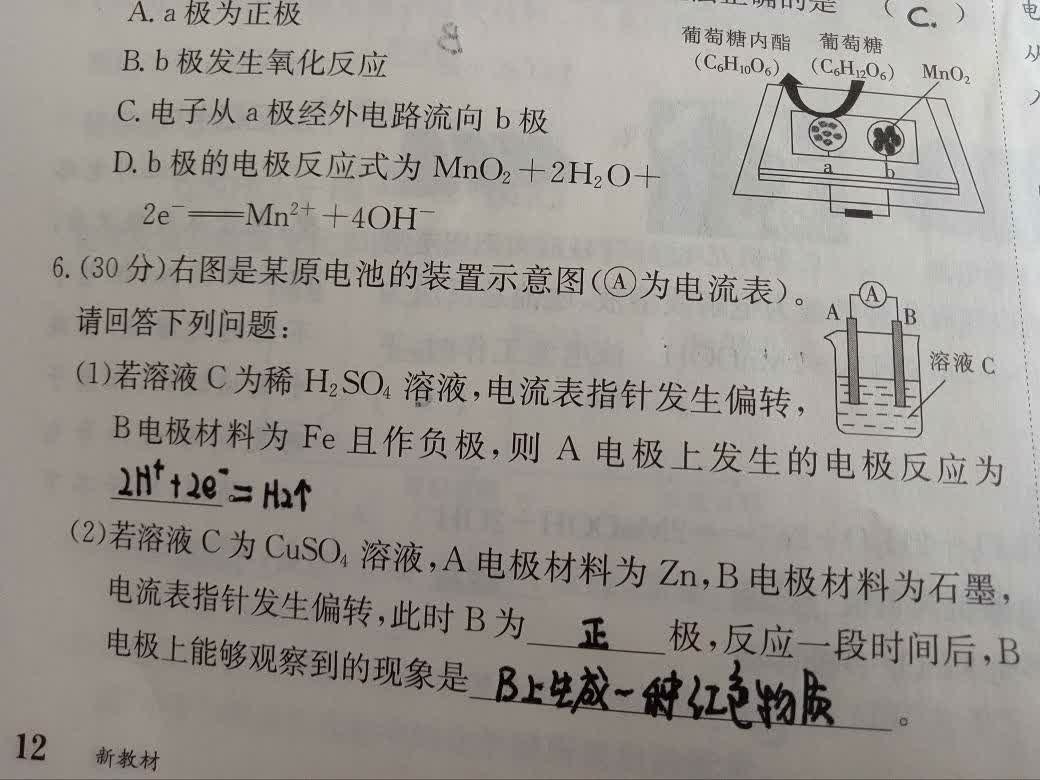 A. a 极为正极
是 ( C. )
B. b 极发生氧化反应
C. 电子从 a 极经外电路流向 b 极
D. b 极的电极反应式为 MnO₂+2H₂O+
2e⁻══Mn²⁺+4OH⁻
葡萄糖内酯 葡萄糖
(C₆H₁₀O₆) (C₆H₁₂O₆) MnO₂
a b
6. (30 分)右图是某原电池的装置示意图(Ⓐ为电流表)。
请回答下列问题:
A A B
溶液 C
(1)若溶液 C 为稀 H₂SO₄ 溶液,电流表指针发生偏转,
B电极材料为 Fe 且作负极,则 A 电极上发生的电极反应为
2H⁺+2e⁻=H₂↑
(2)若溶液 C 为 CuSO₄ 溶液,A 电极材料为 Zn,B 电极材料为石墨,
电流表指针发生偏转,此时 B 为 正 极,反应一段时间后,B
电极上能够观察到的现象是 B上生成一种红色物质 。
12 新教材